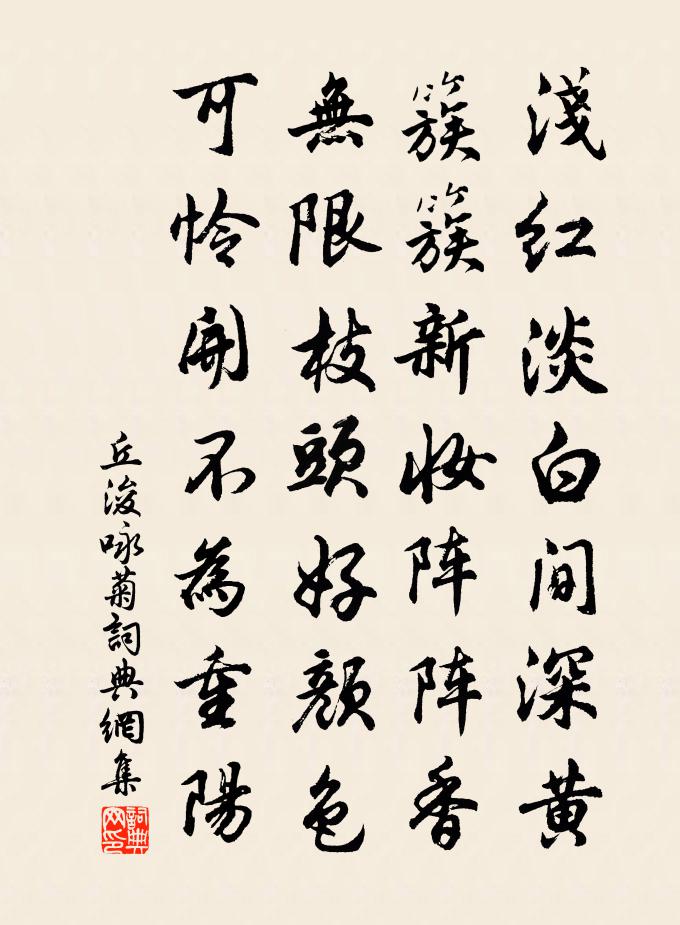 淺紅淡白間深黃
簇簇新妝阵阵香
無限枝頭好顔色
可怜開不為重陽
丘浚咏菊詞典網集
詞典网印